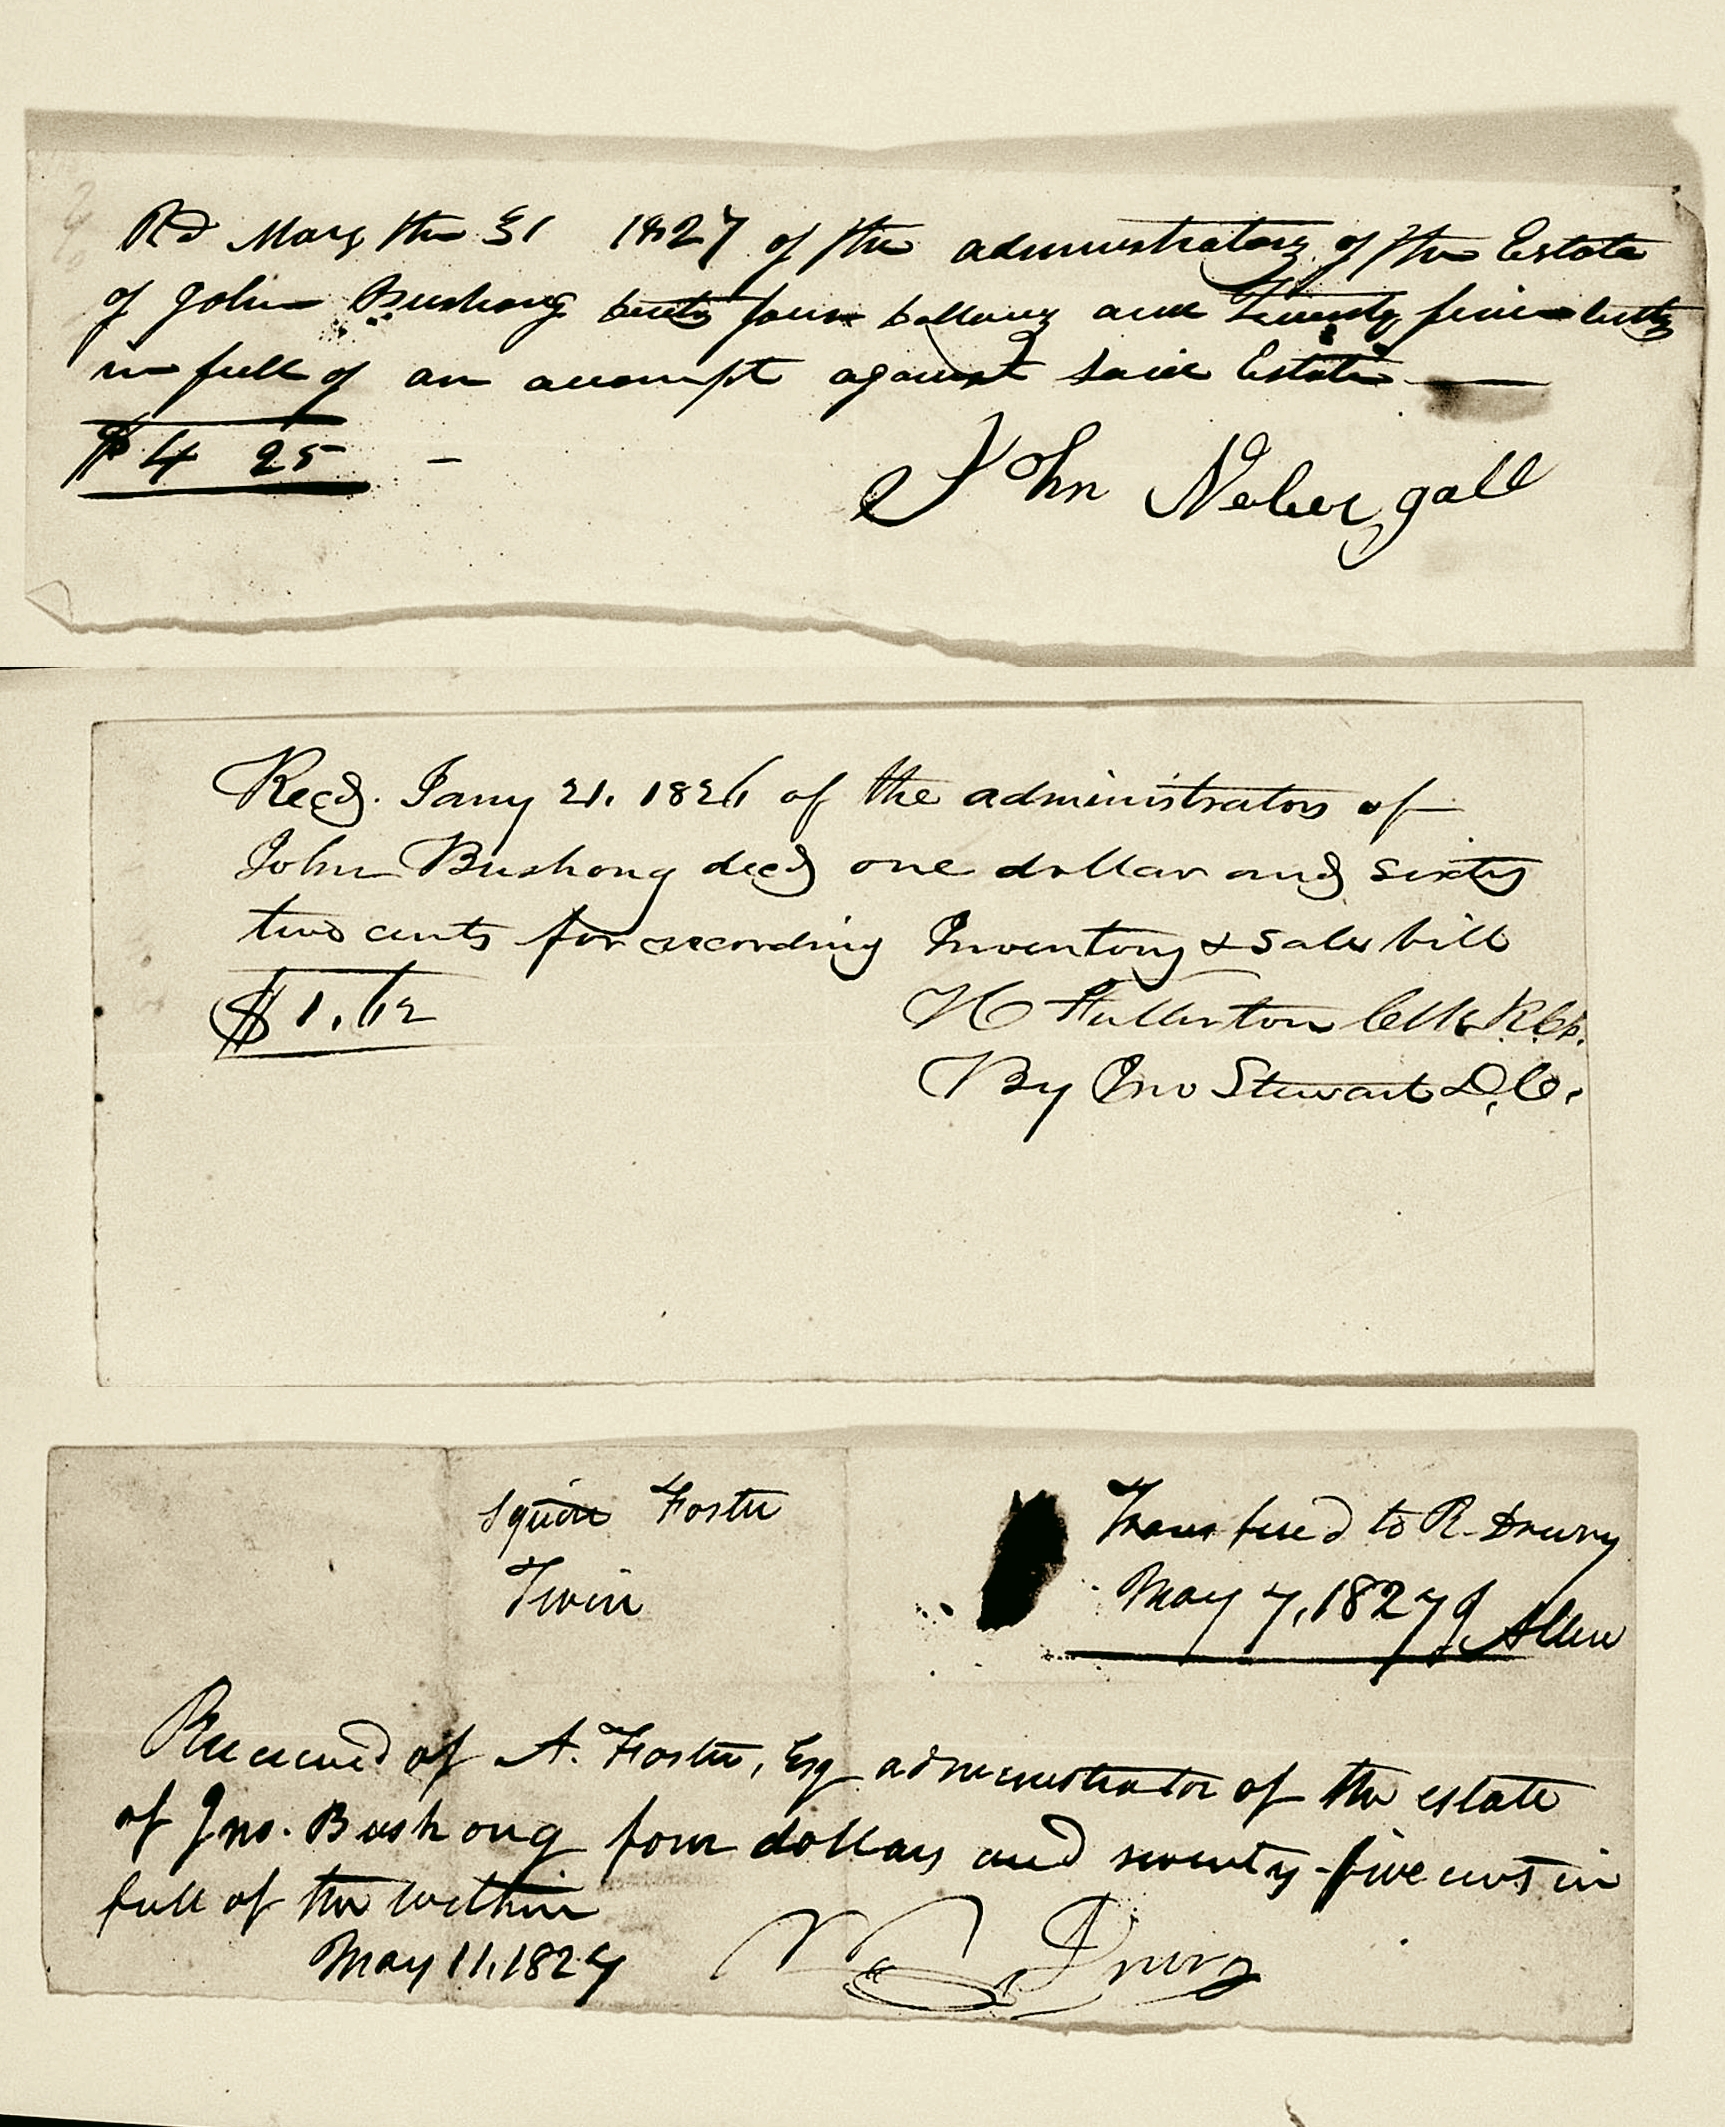 Rd May the 31 1827 of the administrators of the Estate
of John Bushong four Dollars and Twenty five Cents
in full of an accompt against said Estate
$4 25
John Nebergall
Recd. Jany 21. 1826 of the administrators of
John Bushong decd one dollar and sixty
two cents for recording Inventory & sale bill
$1.62
H Fullerton Clk R.Co.
By Jno Stewart D.C.
Squire Foster
Twin
Transfered to R. Drury
May 7, 1827 J. Allen
Received of A. Foster, Esq administrator of the estate
of Jno. Bushong four dollars and seventy-five cents in
full of the within
May 11, 1827
Drury